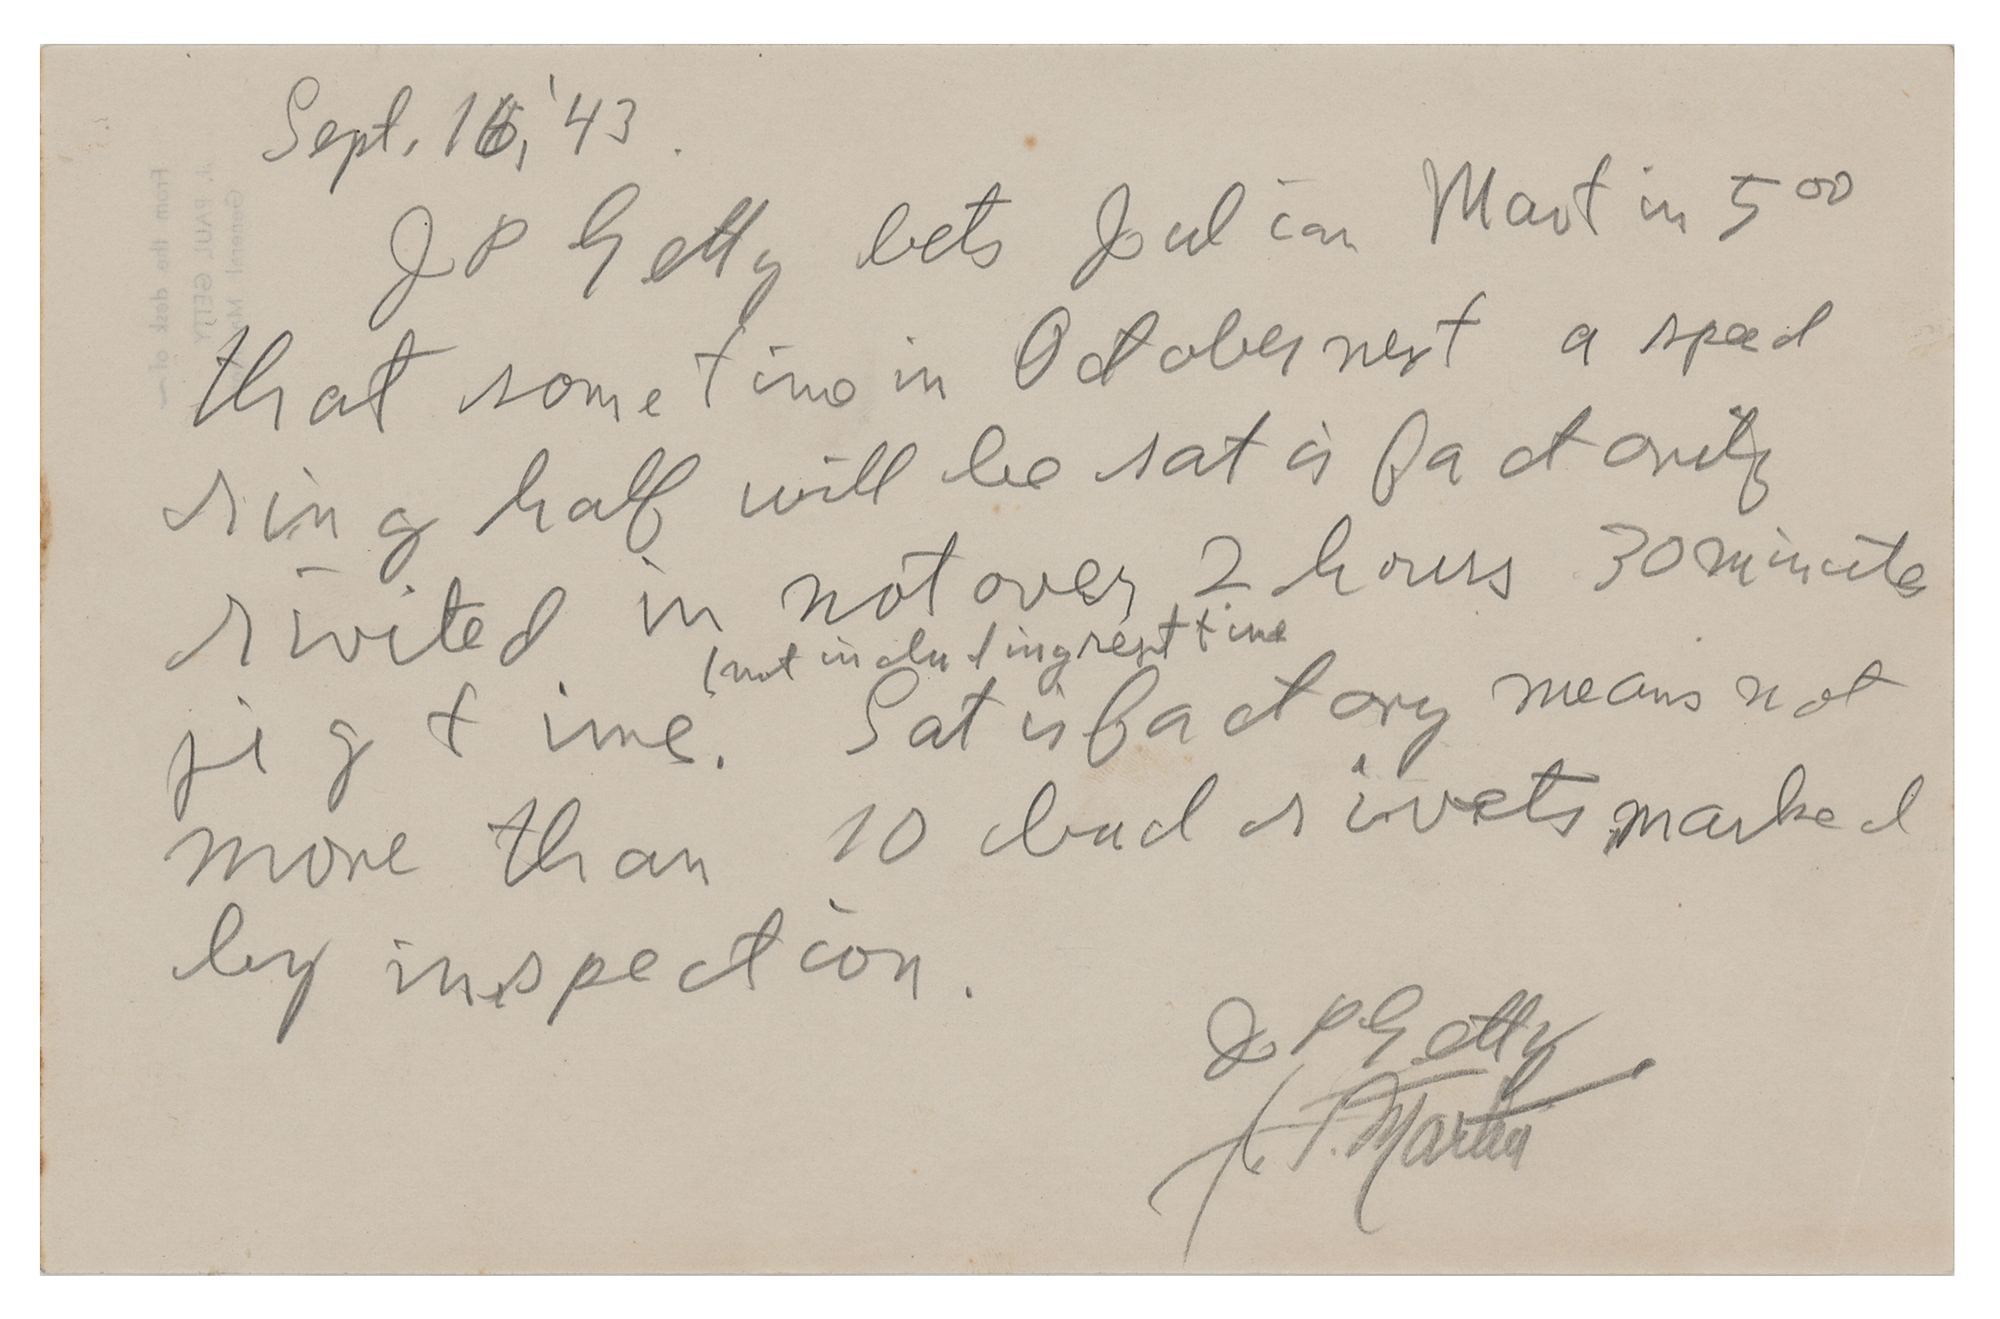 Sept. 16, '43.
J P Getty bets Julian Martin 5 00
that sometime in October next a speed
ring half will be satisfactorily
rivited in not over 2 hours 30 minutes
(not including rest time
jig time. Satisfactory means not
more than 10 bad rivets marked
by inspection.
J P Getty
J. T. Martin
From the desk of—
J. PAUL GETTY
General